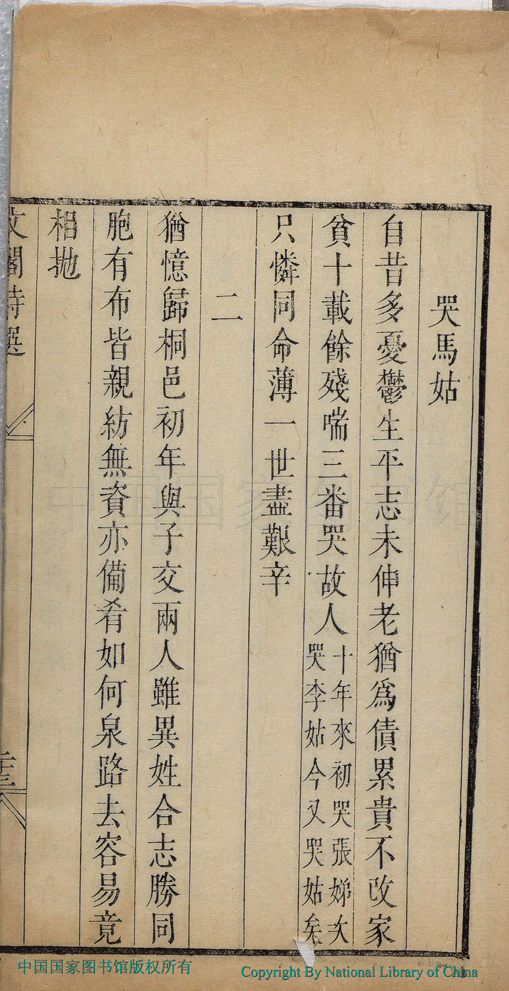 哭馬姑
自昔多憂鬱生平志未伸老猶為債累貴不改家
貧十載餘殘喘三番哭故人十年來初哭張娣次哭李姑今又哭姑矣
只憐同命薄一世盡艱辛
二
猶憶歸桐邑初年與子交兩人雖異姓合志勝同
胞有布皆親紡無資亦備肴如何泉路去容易竟
相拋
文閣詩選
中国国家图书馆版权所有
Copyright By National Library of China